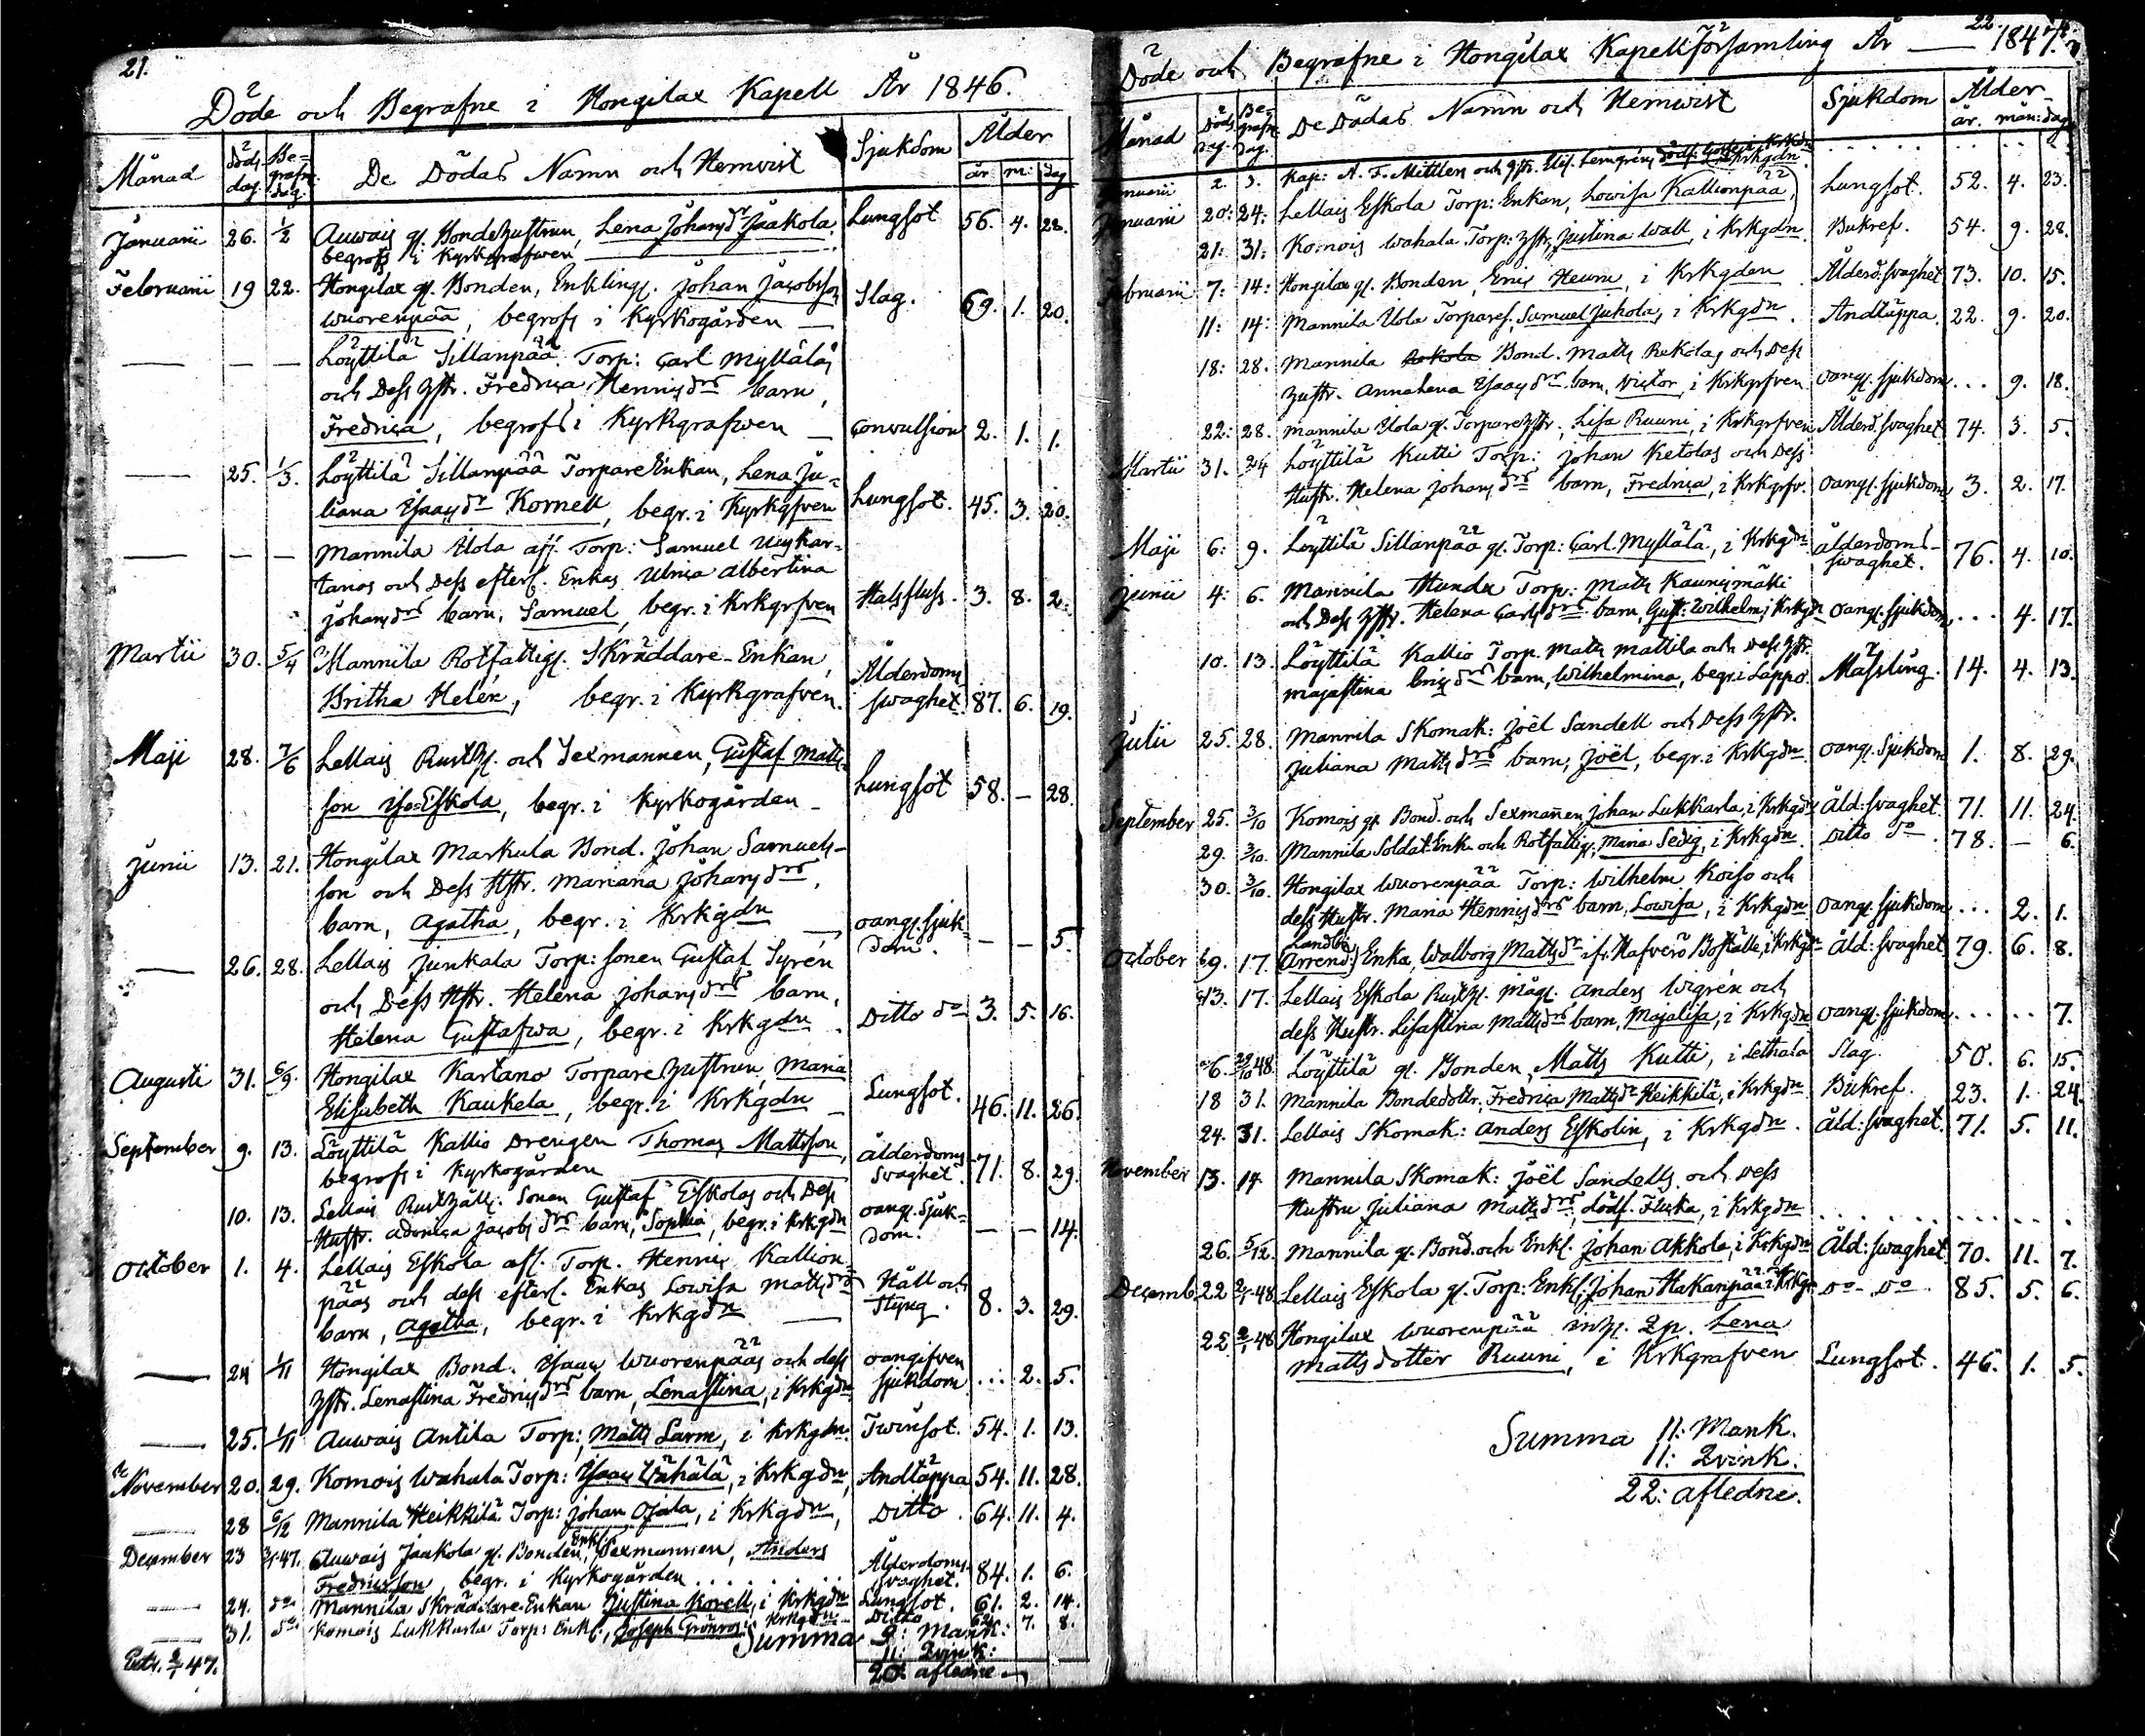 21.
Döde och Begrafne i Hongilax Kapell År 1846.
Månad | Döds dag | Be=grafn. dag. | De Dödas Namn och Hemvist | Sjukdom | Ålder år m: dag
Januarii 26. 1/2 Auwais gl. Bonde Hustrun, Lena Johansdr Jaakola, Lungsot 56. 4. 28.
begrofs i Kyrkgrafwen
Februarii 19 22. Hongilax gl. Bonden, Enklingl. Johan Jacobsson Slag. 69. 1. 20.
Wuorenpää, begrofs i Kyrkogården —
— — — Löyttilä Sillanpää Torp: Carl Myllälas
och Dess Hstr. Fredrica Hennisdrs barn,
Fredrica, begrofs i Kyrkgrafwen — Convulsion 2. 1. 1.
— 25. 1/3. Löyttilä Sillanpää Torpare Enkan, Lena Ju=
liana Esaasdr Kornell, begr. i Kyrkgfven Lungsot. 45. 3. 20.
— — — Mannila Uola afl. Torp: Samuel
tanos och Dess efterl. Enkas Ulrica Albertina
Johansdrs barn, Samuel, begr. i Krkgrfven Halsfluss. 3. 8. 2.
Martii 30. 5/4 Mannila Rotfattigl. Skräddare-Enkan, Ålderdoms
Britha Helén, begr. i Kyrkgrafven. swaghet. 87. 6. 19.
Maji 28. 7/6 Lellais Rusth. och Sexmannen, Gustaf Matts=
son Iso-Eskola, begr. i Kyrkogården — Lungsot 58. — 28.
Junii 13. 21. Hongilax Markula Bond. Johan Samuels=
son och Dess Hstr. Mariana Johansdrs,
barn, Agatha, begr. i Krkgdn — oang. sjuk=
dom. — — 5.
— 26. 28. Lellais Junkala Torp: sonen Gustaf Syrén
och Dess Hstr. Helena Johansdrs barn,
Helena Gustafwa, begr. i Krkgdn. Ditto do 3. 5. 16.
Augusti 31. 6/9. Hongilax Kartano Torpare Hustrun, Maria
Elisabeth Kaukela, begr. i Krkgdn — Lungsot. 46. 11. 26.
September 9. 13. Löyttilä Kallio Drengen Thomas Mattsson, Ålderdoms
begrofs i Kyrkogården Svaghet. 71. 8. 29.
10. 13. Lellais Rusthåll: Sonen Gustaf Eskolas och Dess oang. Sjuk=
Hustr. Adorica Jacobsdrs barn, Sophia, begr. i Krkgdn dom. — — 14.
October 1. 4. Lellais Eskola afl. Torp. Henric Kallion=
pääs och dess efterl. Enkas Lowisa Mattsdrs Håll och
barn, Agatha, begr. i Krkgdn — Styng. 8. 3. 29.
— 24 1/11 Hongilax Bond. Esaias Wuorenpääs och dess oangifven
Hstr. Lenastina Fredricsdrs barn, Lenastina, i Krkgdn sjukdom ... 2. 5.
— 25. 1/11 Auwais Antila Torp: Matts Larm, i Krkgdn. Twinsot. 54. 1. 13.
November 20. 29. Komois Wahala Torp: Esaias Wähälä, i Krkgdn, Andtäppa 54. 11. 28.
— 28 6/12 Mannila Heikkilä Torp: Johan Ojala, i Krkgdn, Ditto. 64. 11. 4.
December 23 3/1-47. Auwais Jaakola gl. Bonden, Enkl., Sexmannen, Anders Ålderdoms
Fredricsson, begr. i Kyrkogården . . . . . Svaghet. 84. 1. 6.
— 24. do Mannila Skräddare-Enkan Justina Korell, i Krkgdn Lungsot. 61. 2. 14.
— 31. do Komois Lukkarla Torp: Enkl., Joseph Grönroos, Krkgdn Ditto 62. 7. 8.
Summa 9: Mank:
11: Qvink:
20: afledne
Extr. 2/1 47.
22.
Döde och Begrafne i Hongilax Kapellförsamling År — 1847.
Månad | Döds dag. | Be=grafn. dag. | De Dödas Namn och Hemvist | Sjukdom | Ålder år. mån: dag.
Januarii 2. 3. Kap: A. F. Mittlers och Hstr. Elis. Lemgréns dödf. Gosse, i Krkgdn . . . . .
Januarii 20: 24: Lellais Eskola Torp: Enkan, Lowisa Kallionpää, Krkgdn. Lungsot. 52. 4. 23.
21: 31: Komois Wahala Torp: Hstr, Justina Wall, i Krkgdn. Bukref. 54. 9. 28.
Februarii 7: 14: Hongilax gl. Bonden, Eric Heurn, i Krkgden Ålderd: svaghet 73. 10. 15.
11: 14: Mannila Uola Torpares. Samuel Juhola, i Krkgdn. Andtäppa. 22. 9. 20.
18: 28. Mannila Bond. Matts Rekolas och Dess
Hustr. Annalena Esaasdrs barn, Victor, i Krkgrfven oang. sjukdom ... 9. 18.
22: 28. Mannila Uola gl. Torpare Hstr., Lisa Ruuni, i Krkgrfven Ålderd. svaghet 74. 3. 5.
Martii 31. 2/4 Löyttilä Kutti Torp: Johan Ketolas och Dess
Hustr. Helena Johansdrs barn, Fredrica, i Krkgrfv. oang. sjukdom 3. 2. 17.
Maji 6: 9. Löyttilä Sillanpää gl. Torp: Carl Myllälä, i Krkgdn Ålderdoms-
swaghet. 76. 4. 10.
Junii 4: 6. Mannila Hunda Torp: Matts Kaunismäki
och Dess Hstr. Helena Carlsdrs barn, Gust: Wilhelm, i Krkgn oang. sjukdom ... 4. 17.
10. 13. Löyttilä Kallio Torp. Matts Mattila och Dess Hstr.
Majastina Ericsdrs barn, Wilhelmina, begr. i Lappo. Mässling. 14. 4. 13.
Julii 25. 28. Mannila Skomak: Joël Sandell och Dess Hstr.
Juliana Mattsdrs barn, Joël, begr. i Krkgdn. oang. Sjukdom 1. 8. 29.
September 25. 3/10 Komois gl. Bond. och Sexmannen Johan Lukkarla, i Krkgdn Åld: svaghet. 71. 11. 24.
29. 3/10. Mannila Soldat Enk. och Rotfattig, Maria Sedig, i Krkgdn. Ditto do. 78. — 6.
30. 3/10. Hongilax Wuorenpää Torp: Wilhelm Koiso och
dess Hustr. Maria Hennisdrs barn, Lowisa, i Krkgdn oang. sjukdom ... 2. 1.
October 9. 17. Landtb. Arrend: Enka, Walborg Mattsdr ifr. Hafverö Boställe, i Krkgdn Åld: svaghet 79. 6. 8.
13. 17. Lellais Eskola Rusth. mågl. Anders Wigrén och
dess Hustr. Lisastina Mattsdrs barn, Majalisa, i Krkgdn oang. sjukdom . . . . 7.
6. 29/10 48. Löyttilä gl. Bonden, Matts Kutti, i Lethala Slag. 50. 6. 15.
18 31. Mannila Bondedottr, Fredrica Mattsdr Heikkilä, i Krkgdn. Bukref. 23. 1. 24.
24. 31. Lellais Skomak: Anders Eskolin, i Krkgdn. Åld: svaghet. 71. 5. 11.
November 13. 14. Mannila Skomak: Joël Sandells och Dess
Hustru Juliana Mattsdrs, dödf. Flicka, i Krkgdn . . . . . . . .
26. 5/12. Mannila gl. Bond. och Enkl. Johan Akkola, i Krkgdn Åld: svaghet 70. 11. 7.
Decemb. 22 2/1-48 Lellais Eskola gl. Torp: Enkl: Johan Hakanpää, i Krkg. do- do- 85. 5. 6.
25 2/1 48 Hongilax Wuorenpää inh. Qp. Lena
Mattsdotter Ruuni, i Krkgrafven Lungsot. 46. 1. 5.
Summa 11: Mank.
11: Qvink.
22: afledne.